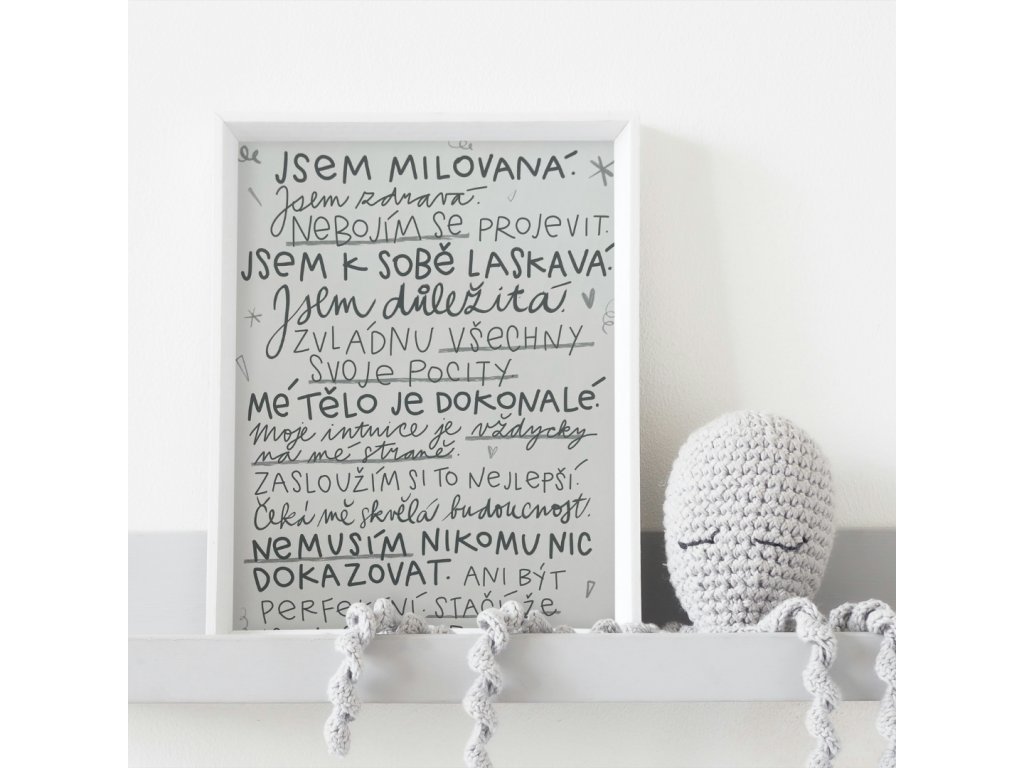 JSEM MILOVANÁ.
Jsem zdravá.
NEBOJÍM SE PROJEVIT.
JSEM K SOBĚ LASKAVÁ.
Jsem důležitá.
ZVLÁDNU VŠECHNY
SVOJE POCITY
MÉ TĚLO JE DOKONALÉ.
Moje intuice je vždycky
na mé straně.
ZASLOUŽÍM SI TO NEJLEPŠÍ.
Čeká mě skvělá budoucnost.
NEMUSÍM NIKOMU NIC
DOKAZOVAT. ANI BÝT
STAČÍ ŽE